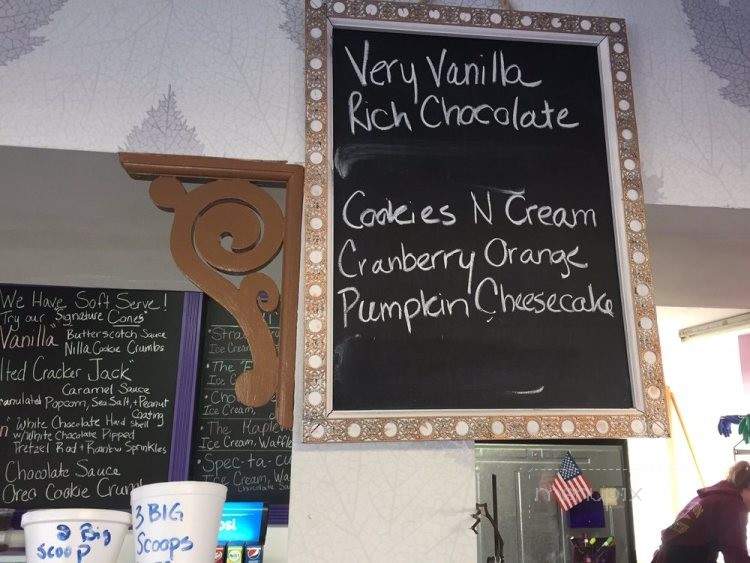 Very Vanilla
Rich Chocolate
Cookies N Cream
Cranberry Orange
Pumpkin Cheesecake
We Have Soft Serve!
Try our "Signature Cones"
Vanilla" Butterscotch Sauce
Nilla Cookie Crumbs
lted Cracker Jack"
Caramel Sauce
anulated Popcorn, Sea Salt, + Peanut
Coating
White Chocolate Hard Shell
w/White Chocolate Dipped
Pretzel Rod + Rainbow Sprinkles
Chocolate Sauce
Oreo Cookie Crum
Ice Cream
"The
Ice C
Ice Cream,
"The Maple
Ice Cream, Waffle
Spec-ta-cu
Ice Cream, Wa
Chocolate Sa
2 Big
Scoop
3 BIG
Scoops
psi
menupix